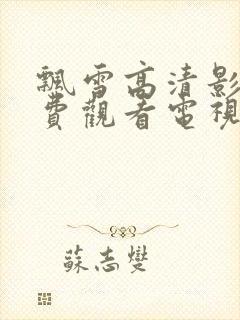 飄雪高清影
費觀看電視
蘇志燮